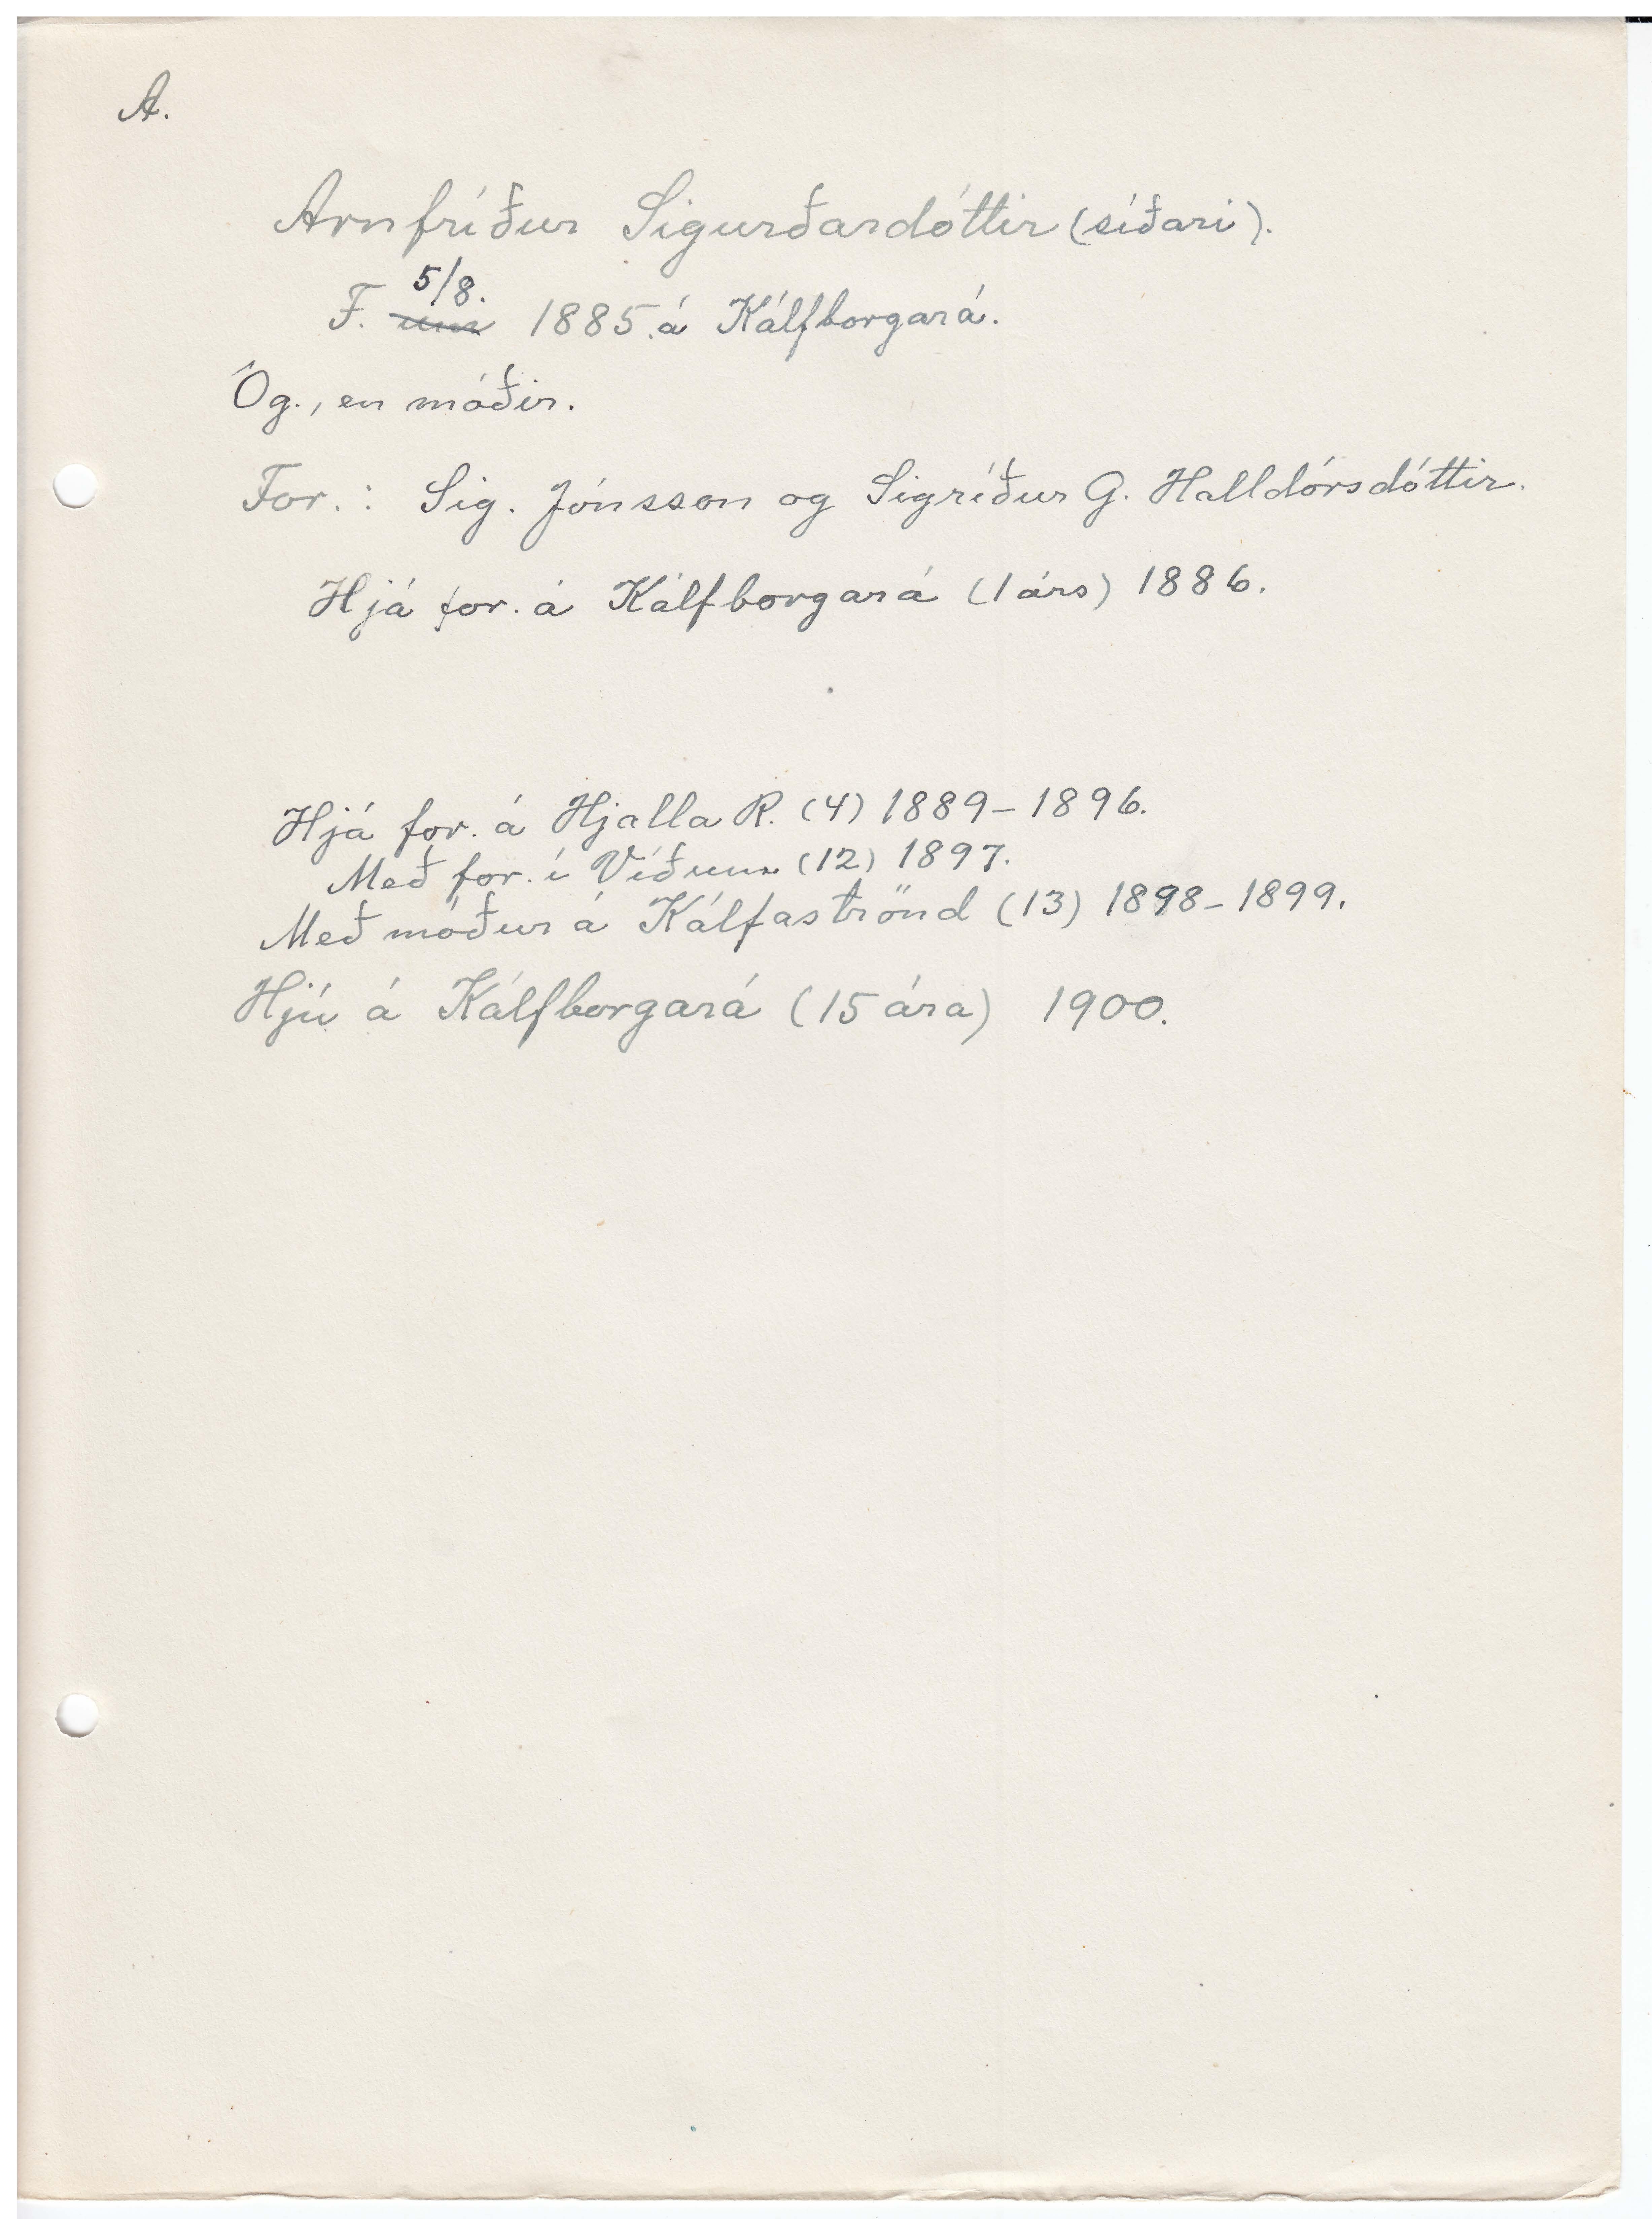 A.
Arnfríður Sigurðardóttir (síðari).
5/8.
F. um 1885 á Kálfborgará.
Óg., en móðir.
For.: Sig. Jónsson og Sigríður G. Halldórsdóttir.
Hjá for. á Kálfborgará (1 árs) 1886.
Hjá for. á Hjalla R. (4) 1889–1896.
Með for. í Víðum (12) 1897.
Með móður á Kálfaströnd (13) 1898–1899.
Hjú á Kálfborgará (15 ára) 1900.